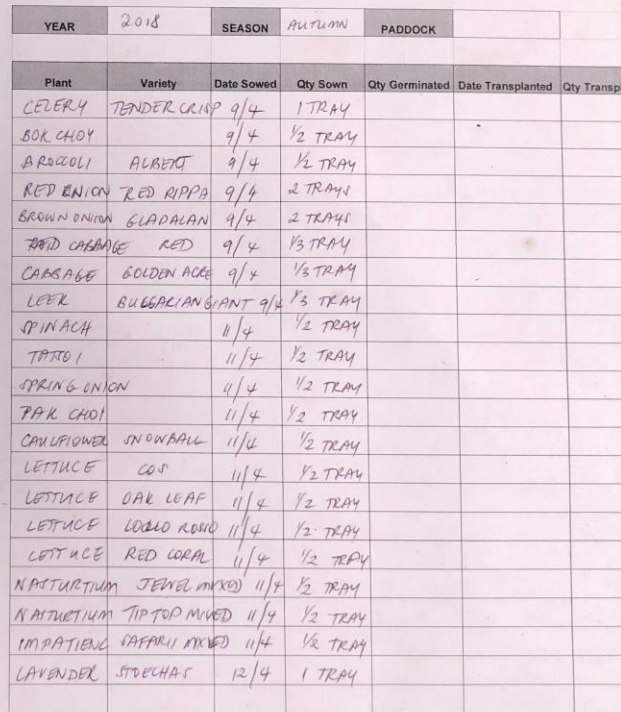 YEAR 2018 SEASON AUTUMN PADDOCK
Plant Variety Date Sowed Qty Sown Qty Germinated Date Transplanted Qty Transpl
CELERY TENDER CRISP 9/4 1 TRAY
BOK CHOY 9/4 1/2 TRAY
BROCCOLI ALBERT 9/4 1/2 TRAY
RED ONION RED RIPPA 9/4 2 TRAYS
BROWN ONION GLADALAN 9/4 2 TRAYS
RED CABBAGE RED 9/4 1/3 TRAY
CABBAGE GOLDEN ACRE 9/4 1/3 TRAY
LEEK BULGARIAN GIANT 9/4 1/3 TRAY
SPINACH 11/4 1/2 TRAY
TATSOI 11/4 1/2 TRAY
SPRING ONION 11/4 1/2 TRAY
PAK CHOI 11/4 1/2 TRAY
CAULIFLOWER SNOWBALL 11/4 1/2 TRAY
LETTUCE COS 11/4 1/2 TRAY
LETTUCE OAK LEAF 11/4 1/2 TRAY
LETTUCE LOLLO ROSSO 11/4 1/2 TRAY
LETTUCE RED CORAL 11/4 1/2 TRAY
NASTURTIUM JEWEL MIXED 11/4 1/2 TRAY
NASTURTIUM TIP TOP MIXED 11/4 1/2 TRAY
IMPATIENS SAFARII MIXED 11/4 1/2 TRAY
LAVENDER STOECHAS 12/4 1 TRAY